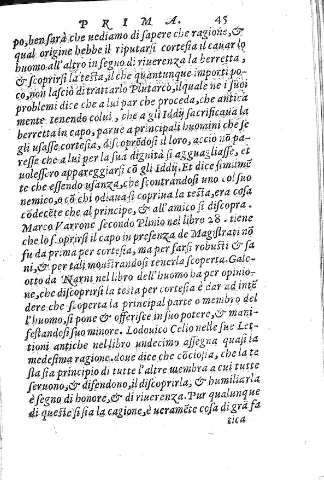 PRIMA. 45
po, ben sarà che uediamo di sapere che ragione, &
qual origine hebbe il riputarsi cortesia il cauar lo
huomo all'altro in segno di riuerenza la berretta,
& scoprirsi la testa, il che quantunque importi po-
co, non lasciò di trattarlo Plutarco, il quale ne i suoi
problemi dice che a lui par che proceda, che antica
mente tenendo colui, che a gli Iddij sacrificaua la
berretta in capo, parue a principali huomini che se
gli usasse cortesia, discoprēdosi il loro, acciò nō pa-
resse che a lui per la sua dignità si agguagliasse, et
uolessero appareggiarsi cō gli Iddij. Et dice similmē
te che essendo usanza, che scontrandosi uno col suo
nemico, o cō chi odiaua si copriua la testa, era cosa
cōdecēte che al principe, & all'amico si discopra.
Marco Varrone secondo Plinio nel libro 28. tiene
che lo scoprirsi il capo in presenza de Magistrati nō
fu da prima per cortesia, ma per farsi robusti & sa
ni, & per tali mostrandosi tenerla scoperta. Gale-
otto da Narni nel libro dell'huomo ha per opinio-
ne, che discoprirsi la testa per cortesia è dar ad intē
dere che scoperta la principal parte o membro del
l'huomo, si pone & offerisce in suo potere, & mani-
festandosi suo minore. Lodouico Celio nelle sue Let-
tioni antiche nel libro undecimo assegna quasi la
medesima ragione. doue dice che cōciosia, che la te
sta sia principio di tutte l'altre membra a cui tutte
seruono, & difendono, il discoprirla, & humiliarla
è segno di honore, & di riuerenza. Pur qualunque
di queste si sia la cagione, è ueramēte cosa di grā fa
tica